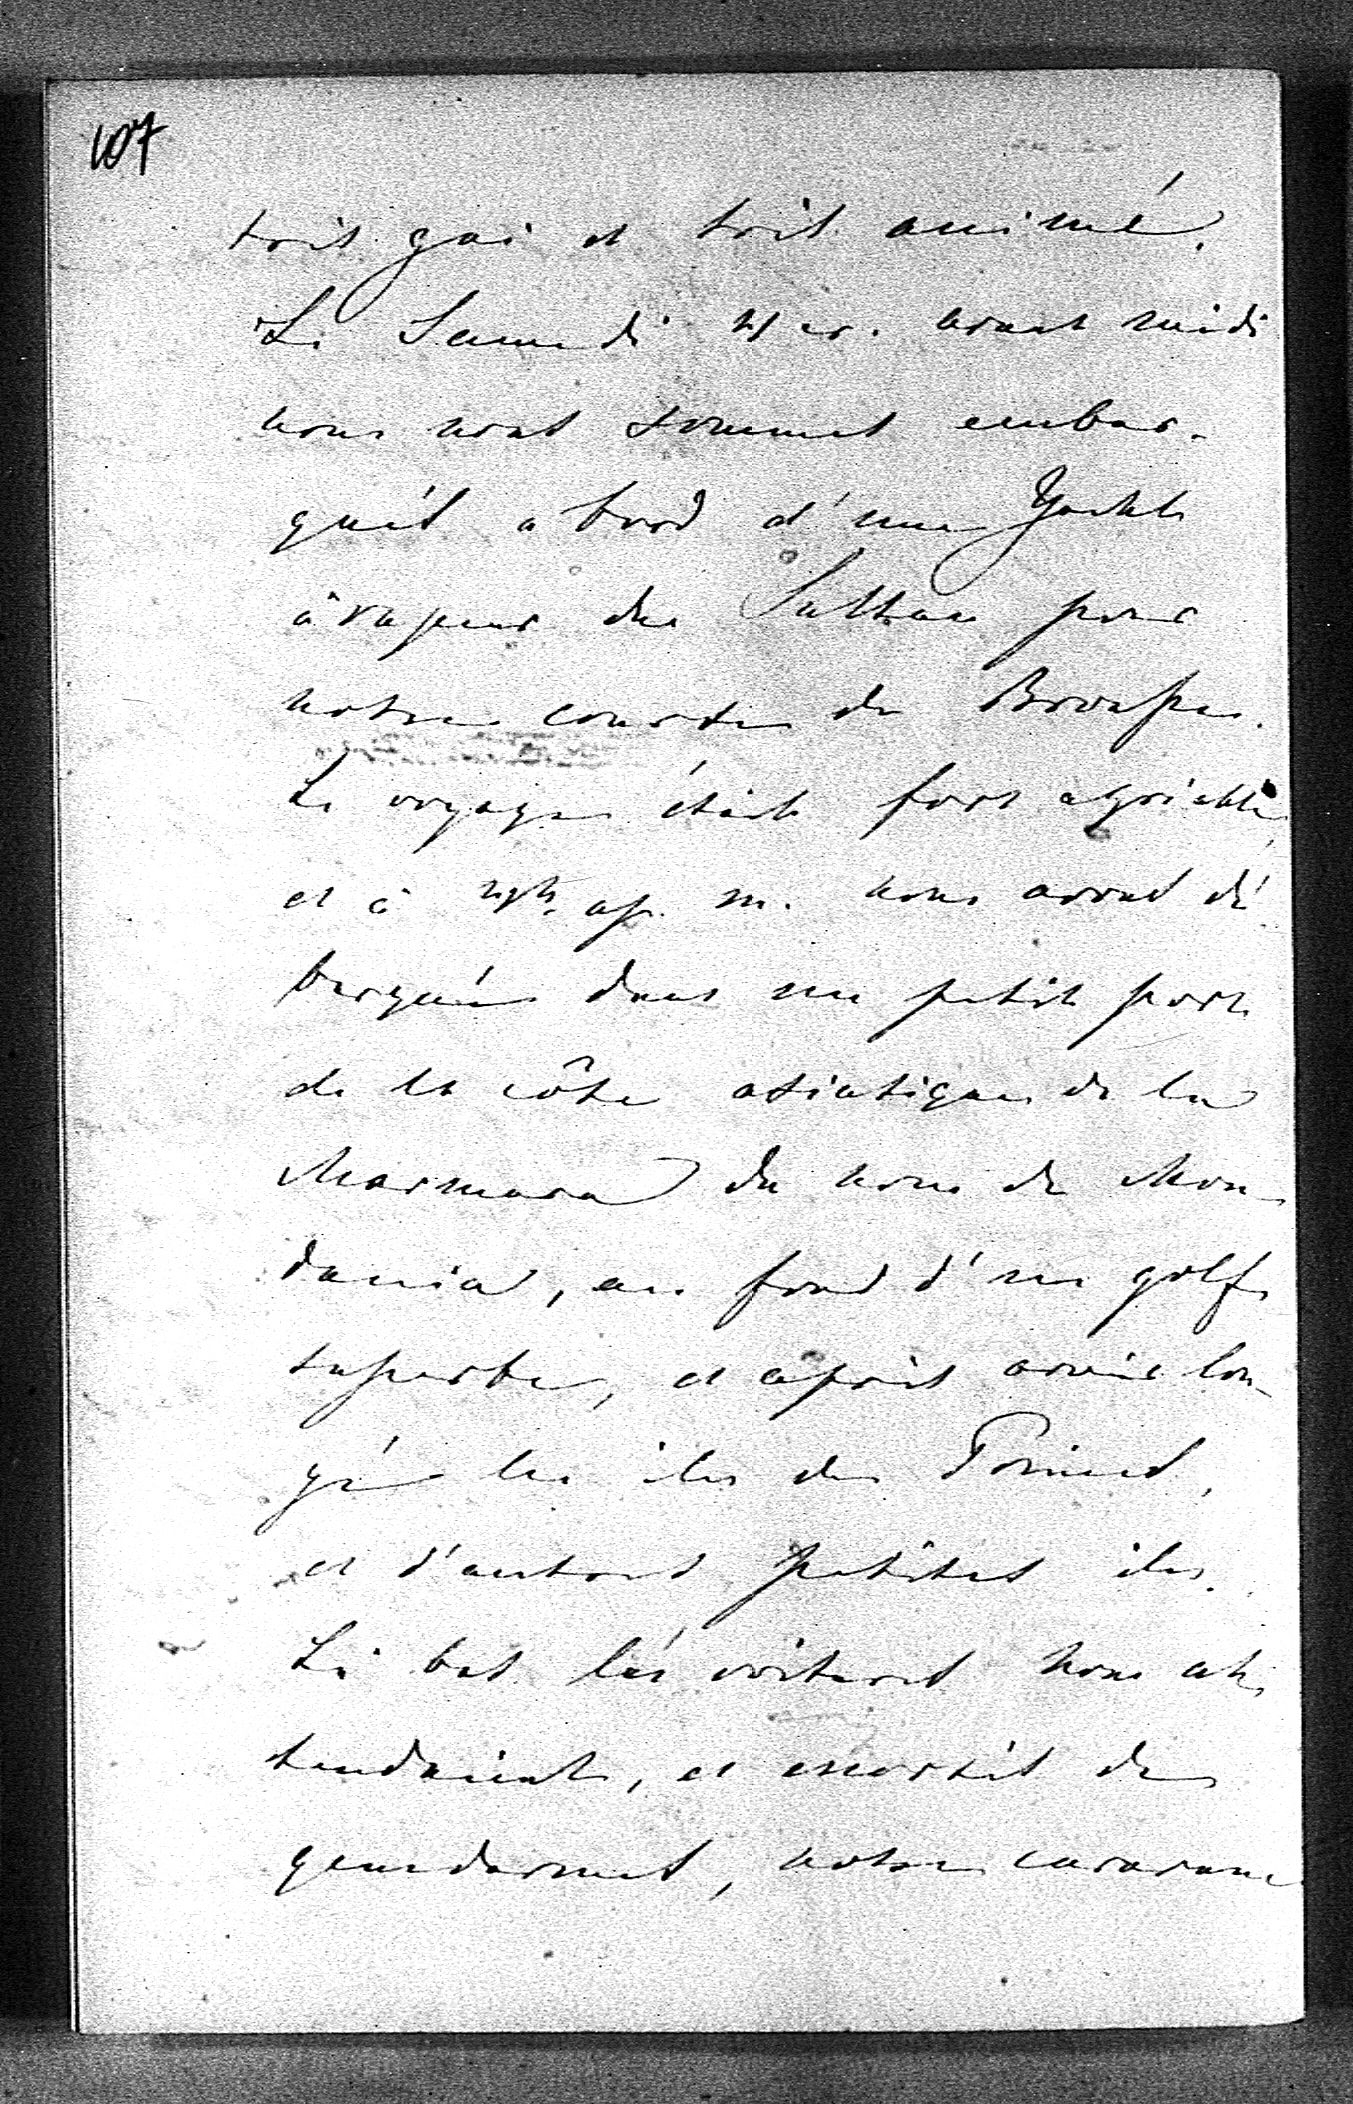 107
très gai et très animé.
Le Samedi cr. avant midi
nous nous sommes embar-
qués a bord d'une Yacht
à vapeur du Sultan pour
notre course de Brousse.
Le voyage était fort agréable,
et à ap. m. nous avons dé
barqués dans un petit port
de la côte asiatique de la
Marmara du nom de Mou
dania, au fond d'un golfe
superbe, et après avoir lon-
gé les iles des Princes,
et d'autres petites iles.
Là bas les voitures nous at
tendaient, et escortés de
gensdarmes, notre caravane